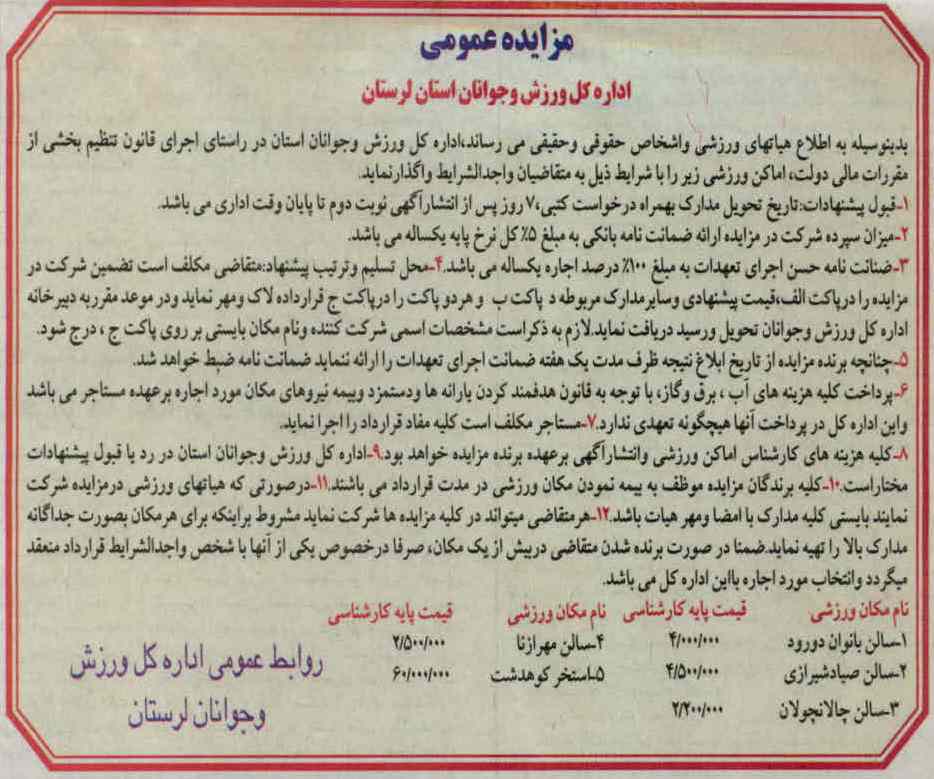 مزایده عمومی
اداره کل ورزش وجوانان استان لرستان
بدینوسیله به اطلاع هیاتهای ورزشی واشخاص حقوقی وحقیقی می رساند،اداره کل ورزش وجوانان استان در راستای اجرای قانون تنظیم بخشی از
مقررات مالی دولت، اماکن ورزشی زیر را با شرایط ذیل به متقاضیان واجدالشرایط واگذارنماید.
۱-قبول پیشنهادات:تاریخ تحویل مدارک بهمراه درخواست کتبی،۷ روز پس از انتشارآگهی نوبت دوم تا پایان وقت اداری می باشد.
۲-میزان سپرده شرکت در مزایده ارائه ضمانت نامه بانکی به مبلغ ۵٪ کل نرخ پایه یکساله می باشد.
۳-ضنانت نامه حسن اجرای تعهدات به مبلغ ۱۰۰٪ درصد اجاره یکساله می باشد.۴-محل تسلیم وترتیب پیشنهاد:متقاضی مکلف است تضمین شرکت در
مزایده را درپاکت الف،قیمت پیشنهادی وسایرمدارک مربوطه د پاکت ب و هردو پاکت را درپاکت ج قرارداده لاک ومهر نماید ودر موعد مقرربه دبیرخانه
اداره کل ورزش وجوانان تحویل ورسید دریافت نماید.لازم به ذکراست مشخصات اسمی شرکت کننده ونام مکان بایستی بر روی پاکت ج ، درج شود.
۵-چنانچه برنده مزایده از تاریخ ابلاغ نتیجه ظرف مدت یک هفته ضمانت اجرای تعهدات را ارائه ننماید ضمانت نامه ضبط خواهد شد.
۶-پرداخت کلیه هزینه های آب ، برق وگاز، با توجه به قانون هدفمند کردن یارانه ها ودستمزد وبیمه نیروهای مکان مورد اجاره برعهده مستاجر می باشد
واین اداره کل در پرداخت آنها هیچگونه تعهدی ندارد.۷-مستاجر مکلف است کلیه مفاد قرارداد را اجرا نماید.
۸-کلیه هزینه های کارشناس اماکن ورزشی وانتشارآگهی برعهده برنده مزایده خواهد بود.۹-اداره کل ورزش وجوانان استان در رد یا قبول پیشنهادات
مختاراست.۱۰-کلیه برندگان مزایده موظف به بیمه نمودن مکان ورزشی در مدت قرارداد می باشند.۱۱-درصورتی که هیاتهای ورزشی درمزایده شرکت
نمایند بایستی کلیه مدارک با امضا ومهر هیات باشد.۱۲-هرمتقاضی میتواند در کلیه مزایده ها شرکت نماید مشروط براینکه برای هرمکان بصورت جداگانه
مدارک بالا را تهیه نماید.ضمنا در صورت برنده شدن متقاضی دربیش از یک مکان، صرفا درخصوص یکی از آنها با شخص واجدالشرایط قرارداد منعقد
میگردد وانتخاب مورد اجاره بااین اداره کل می باشد.
نام مکان ورزشی قیمت پایه کارشناسی نام مکان ورزشی قیمت پایه کارشناسی
۱-سالن بانوان دورود ۴/۰۰۰/۰۰۰ ۴-سالن مهرازنا ۲/۵۰۰/۰۰۰
۲-سالن صیادشیرازی ۴/۵۰۰/۰۰۰ ۵-استخر کوهدشت ۶۰/۰۰۰/۰۰۰
۳-سالن چالانچولان ۲/۲۰۰/۰۰۰
روابط عمومی اداره کل ورزش
وجوانان لرستان